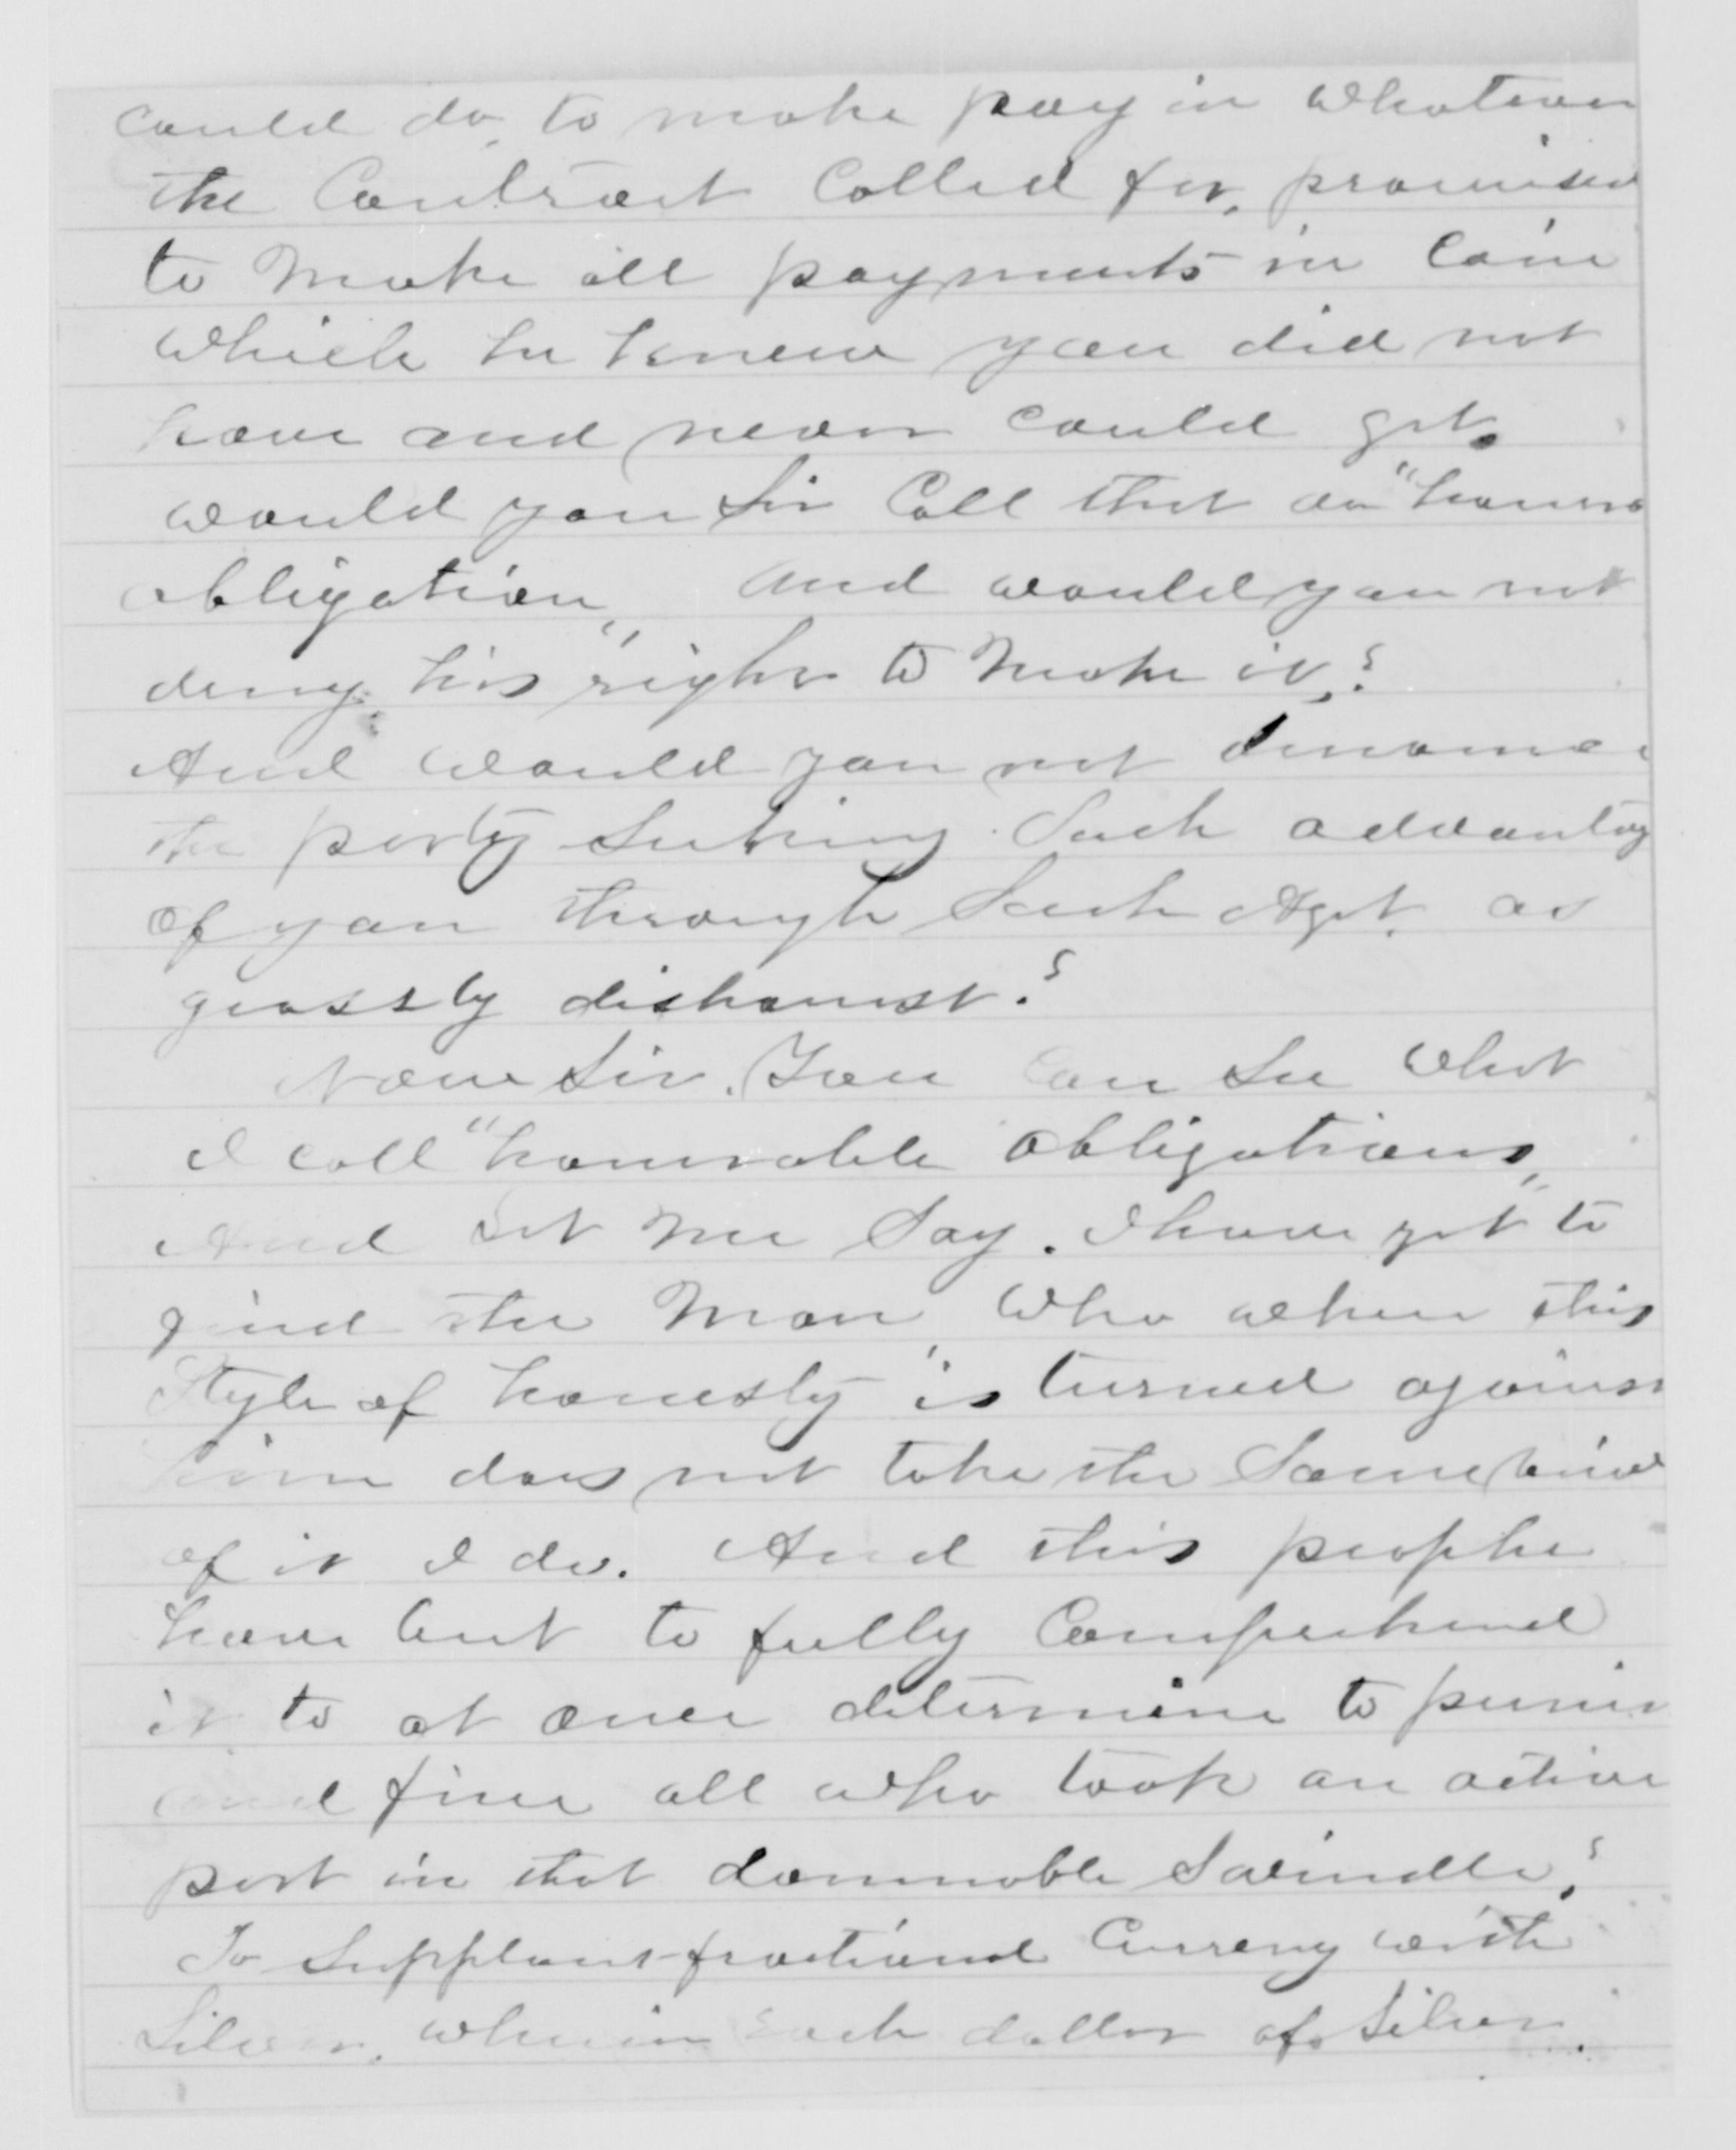 could do, to make pay in whatever
the Contract Called for, promised
to Make all payments in Coin
which he knew you did not
have and never could get,
would you Sir Call that an "honora
obligation," And would you not
deny his right to Make it,?
And would you not denounce
the party Seeking Such advantag
of you through Such Agt. as
grossly dishonest.?
Now Sir. You Can See what
I call "honorable obligations,"
And let me Say. I have yet to
find the Man, who when this
Style of honesty is turned against
him does not take the Same view
of it I do. And this people
have but to fully Comprehend
it to at once determine to punish
and fine all who took an active
part in that damnable Swindle,?
To Supplant fractional Curreny with
Silver, wherein each dollar of Silver.